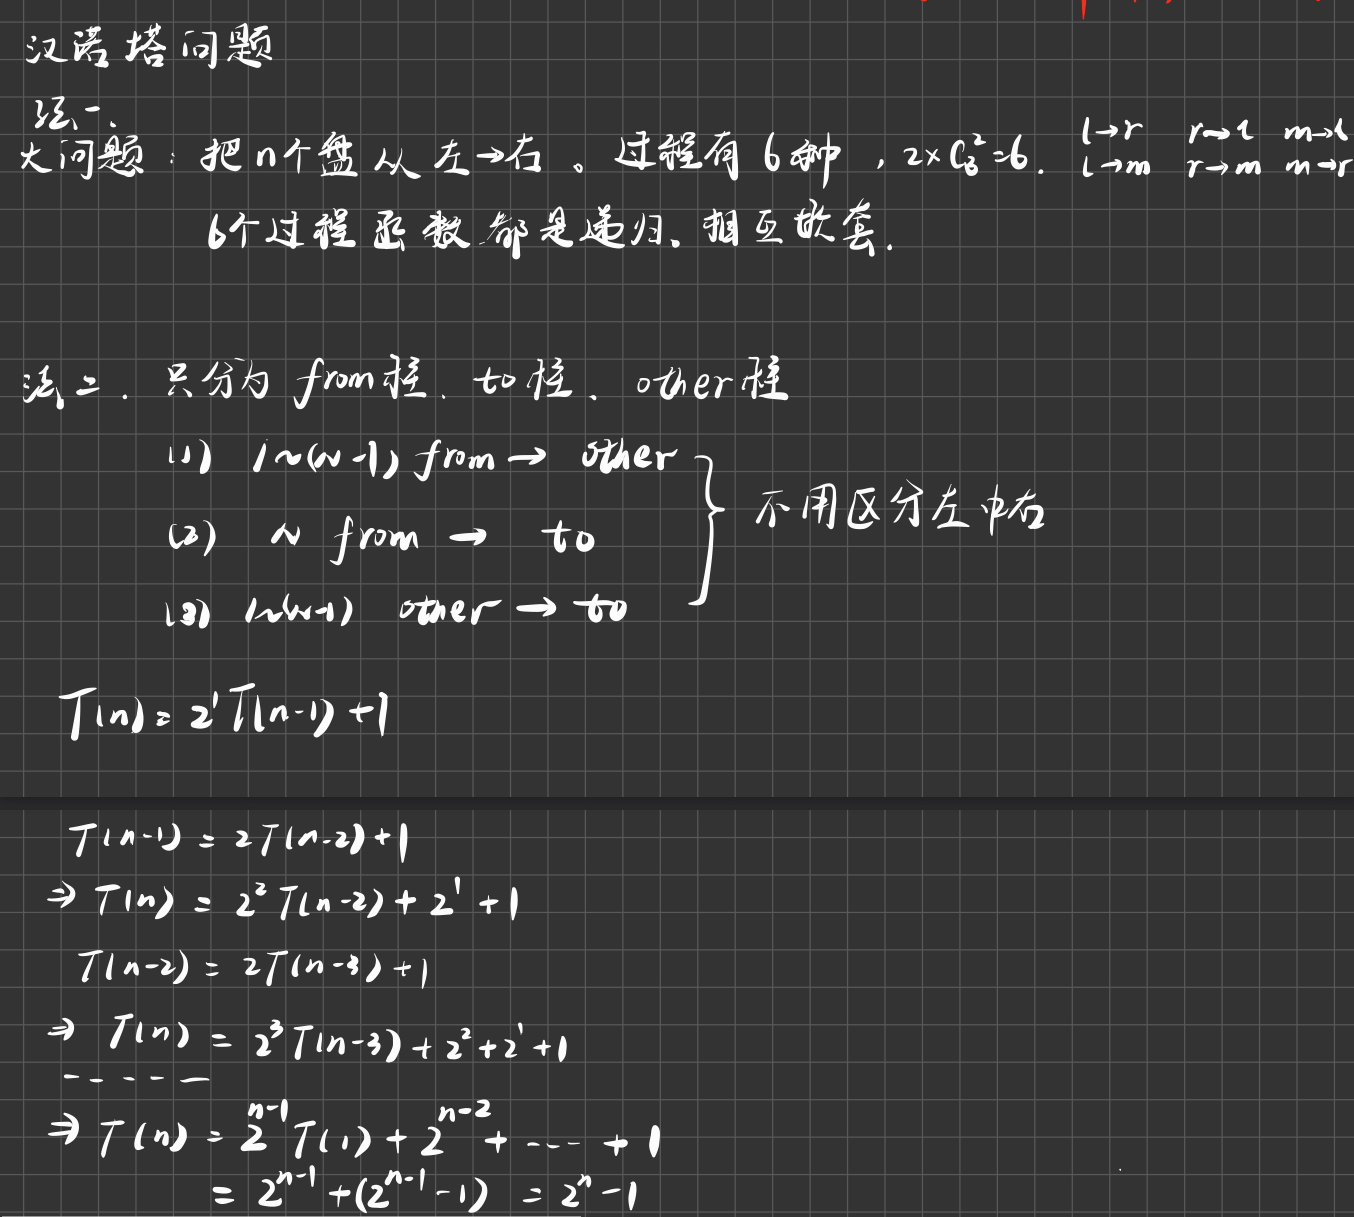 汉诺塔问题
法一、
大问题：把n个盘从左→右。过程有6种，2×C₃²=6. l→r r→l m→l
l→m r→m m→r
6个过程函数都是递归、相互嵌套.
法二. 只分为 from柱、to柱、other柱
(1) 1~(N-1) from → other
(2) N from → to
(3) 1~(N-1) other → to
不用区分左中右
T(n) = 2¹T(n-1)+1
T(n-1) = 2T(n-2)+1
⇒ T(n) = 2²T(n-2)+2¹+1
T(n-2) = 2T(n-3)+1
⇒ T(n) = 2³T(n-3)+2²+2¹+1
-----
⇒ T(n) = 2ⁿ⁻¹T(1)+2ⁿ⁻²+----+1
= 2ⁿ⁻¹+(2ⁿ⁻¹-1) = 2ⁿ-1